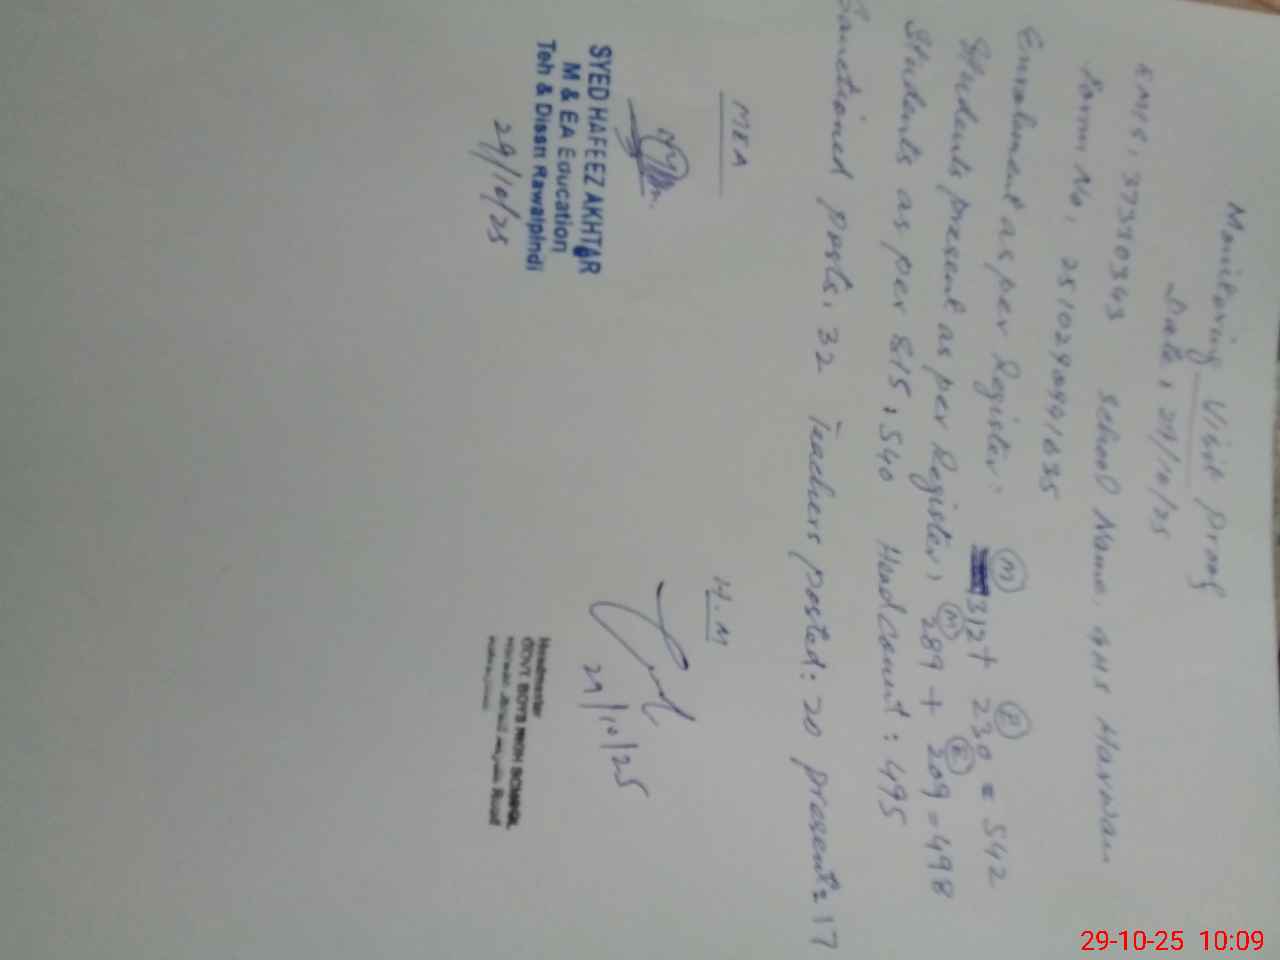 Monitoring Visit Proof
Date: 29/10/25
EMIS: 37330343 School Name: GHS Harwan
Form No: 251029099
(M) (F)
Enrolment as per Register: 312 + 230 = 542
(M) (F)
Students present as per Register: 289 + 209 = 498
Students as per SIS: 540 Head Count: 495
Sanctioned posts: 32 Teachers posted: 20 present: 17
MEA
H.M
SYED HAFEEZ AKHTAR
M & EA Education
Teh & Disstt Rawalpindi
29/10/25
29/10/25
Headmaster
GOVT. BOYS HIGH SCHOOL
Road
29-10-25 10:09